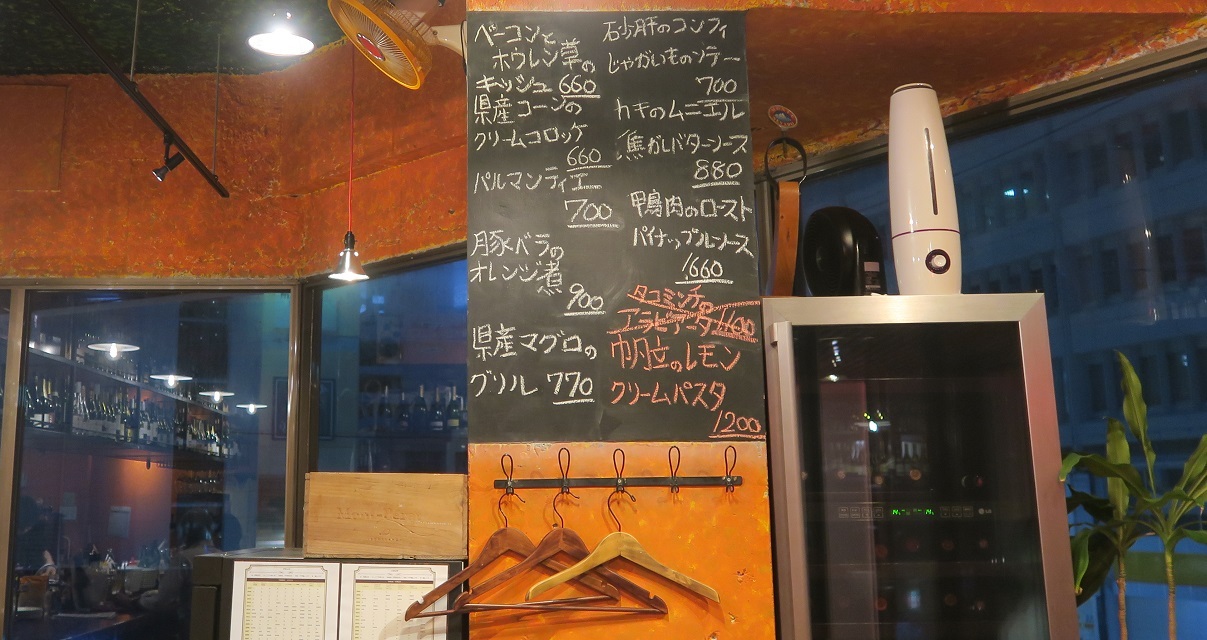 ベーコンと
ホウレン草の
キッシュ 660
県産コーンの
クリームコロッケ
660
パルマンティエ
700
豚バラの
オレンジ煮
900
県産マグロの
グリル 770
砂肝のコンフィ
じゃがいものソテー
700
カキのムニエル
焦がしバターソース
880
鴨肉のロースト
パイナップルソース
1660
タコミンチの
アラビアータ 1100
帆立のレモン
クリームパスタ
1200